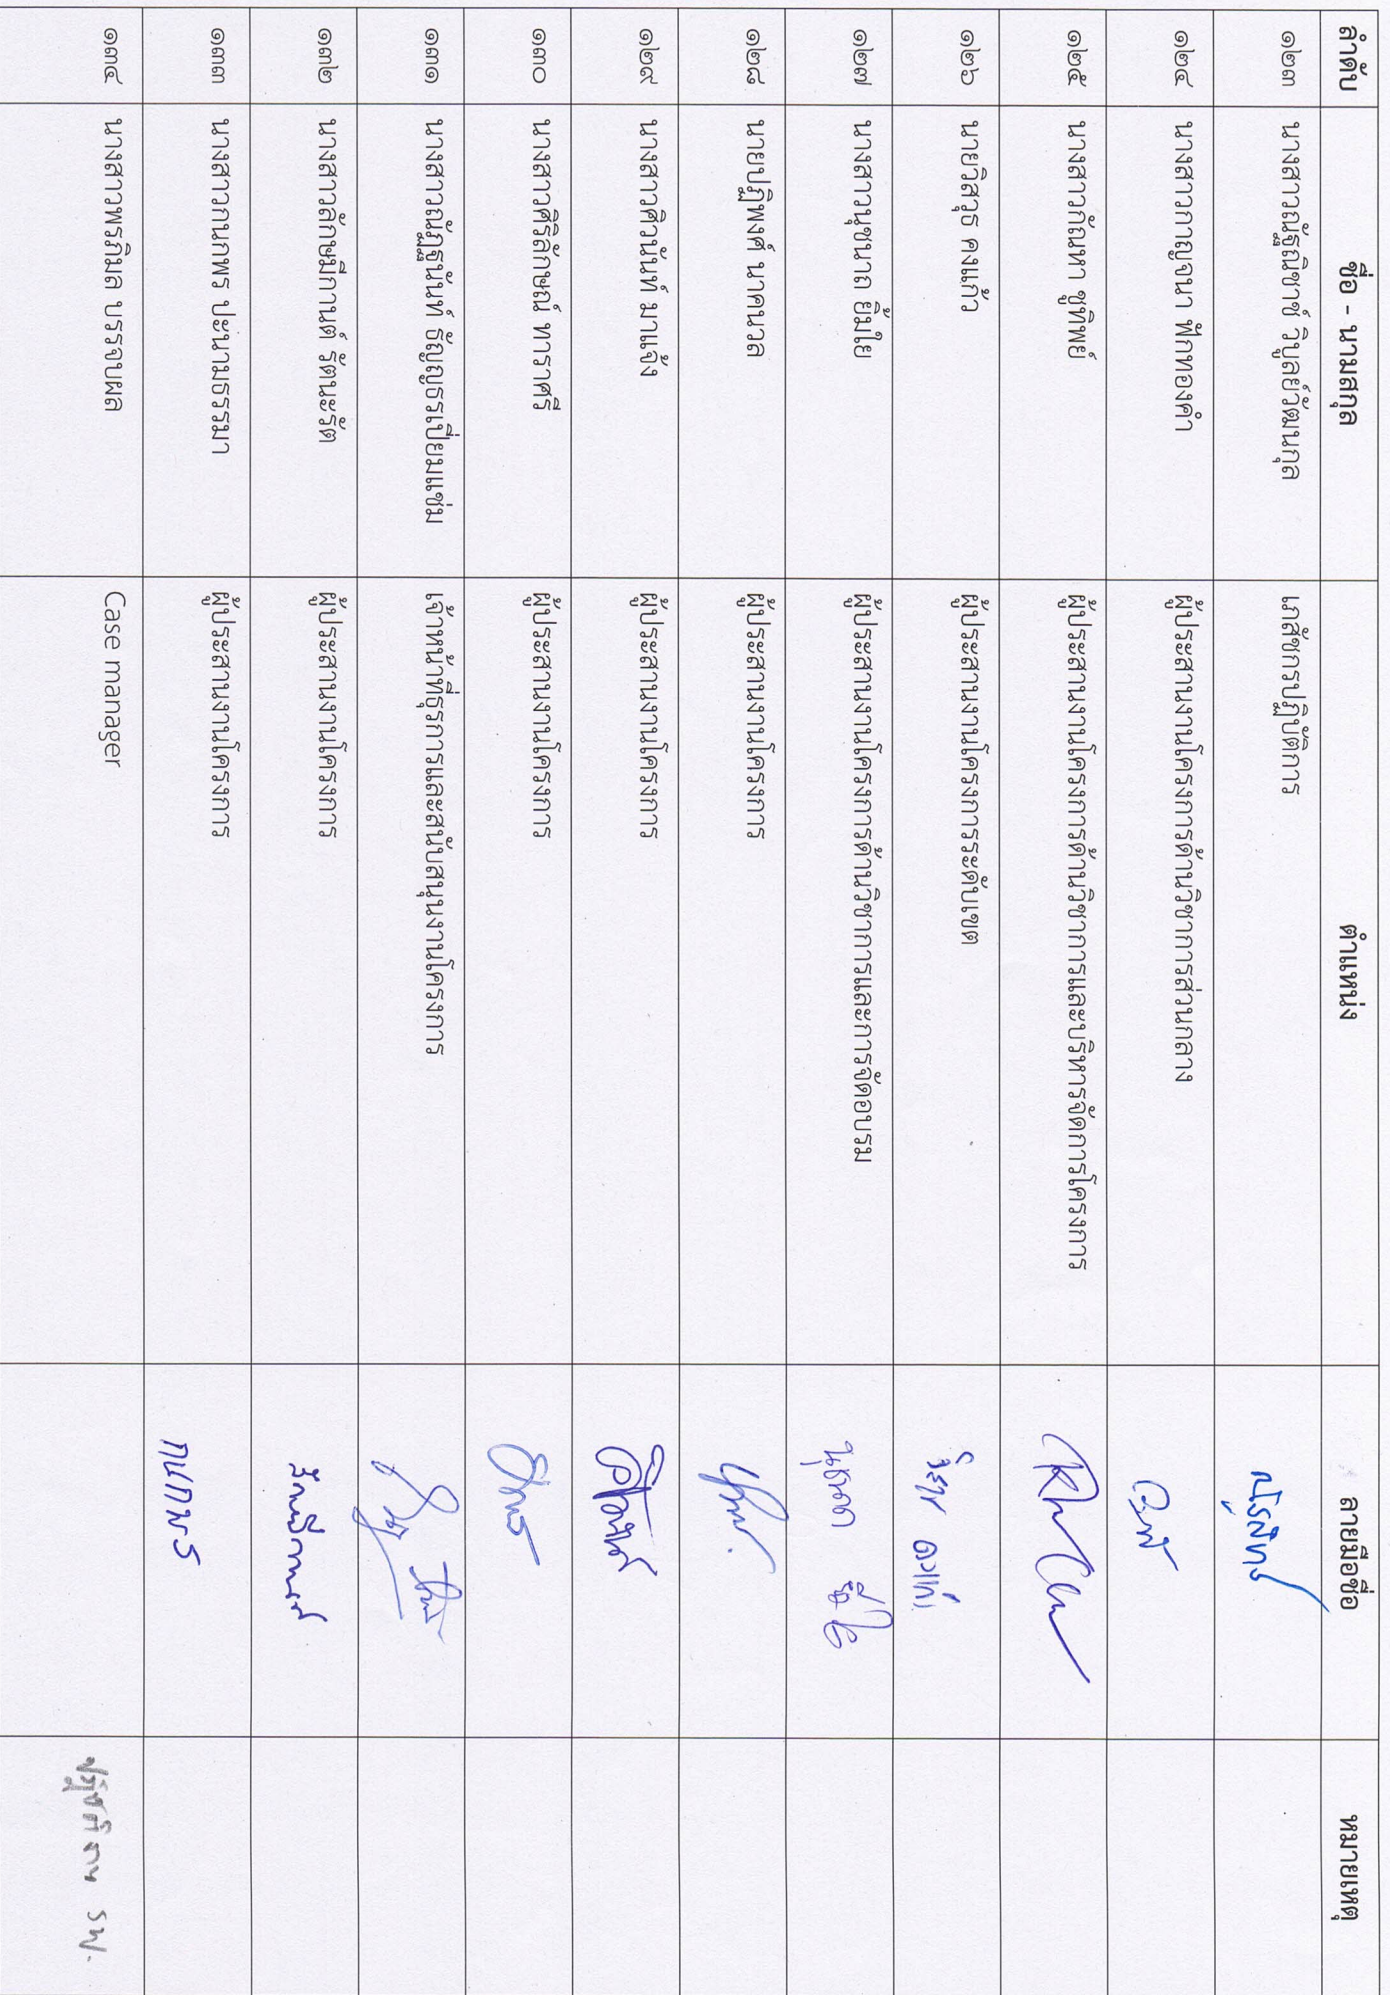 ลำดับ ชื่อ - นามสกุล ตำแหน่ง ลายมือชื่อ หมายเหตุ
๑๒๓ นางสาวณัฐณิชาช์ วิบูลย์วัฒนกุล เภสัชกรปฏิบัติการ
๑๒๔ นางสาวกาญจนา ฟักทองคำ ผู้ประสานงานโครงการด้านวิชาการส่วนกลาง
๑๒๕ นางสาวกัณหา ชูทิพย์ ผู้ประสานงานโครงการด้านวิชาการและบริหารจัดการโครงการ
๑๒๖ นายวิสวุธ คงแก้ว ผู้ประสานงานโครงการระดับเขต
๑๒๗ นางสาวนุชนาถ ยิ้มใย ผู้ประสานงานโครงการด้านวิชาการและการจัดอบรม นุชนาถ
๑๒๘ นายปฏิพงศ์ นาคนวล ผู้ประสานงานโครงการ
๑๒๙ นางสาวศิวนันท์ มาแจ้ง ผู้ประสานงานโครงการ
๑๓๐ นางสาวศิริลักษณ์ ทาราศรี ผู้ประสานงานโครงการ
๑๓๑ นางสาวณัฏฐนันท์ ธัญญธรเปี่ยมแช่ม เจ้าหน้าที่ธุรการและสนับสนุนงานโครงการ
๑๓๒ นางสาวลักษมีกานต์ รัตนะรัต ผู้ประสานงานโครงการ
๑๓๓ นางสาวกนกพร ปะนามธรรมา ผู้ประสานงานโครงการ กนกพร
๑๓๔ นางสาวพรภิมล บรรจบผล Case manager รพ.